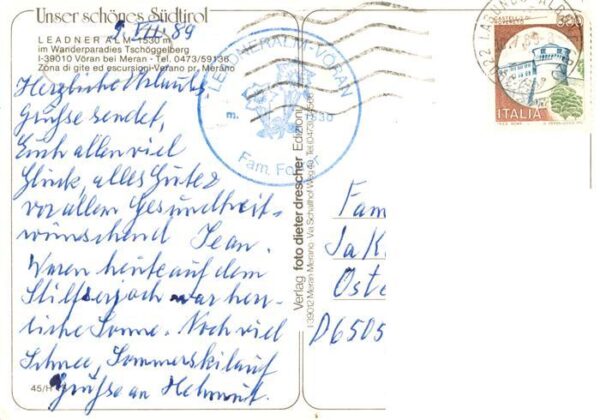 Unser schönes Südtirol
LEADNER ALM - 1530 m
im Wanderparadies Tschöggelberg
I-39010 Vöran bei Meran - Tel. 0473/59136
Zona di gite ed escursioni-Verano pr. Merano
2. VII. 89
Herzliche Urlaubs
grüße sendet,
Euch allen viel
Glück, alles Gute &
vor allem Gesundheit-
wünschend Jean.
Waren heute auf dem
Stilfserjoch war herr-
liche Sonne. Noch viel
Schnee, Sommerskilauf
Grüße an Helmut.
45/H
LEADNERALM-VÖRAN
m. 1530
Fam.
Verlag foto dieter drescher Edizioni
I-39012 Meran-Merano Via Schaffer Weg
ITALIA
Fam
Jak
Oste
D6505